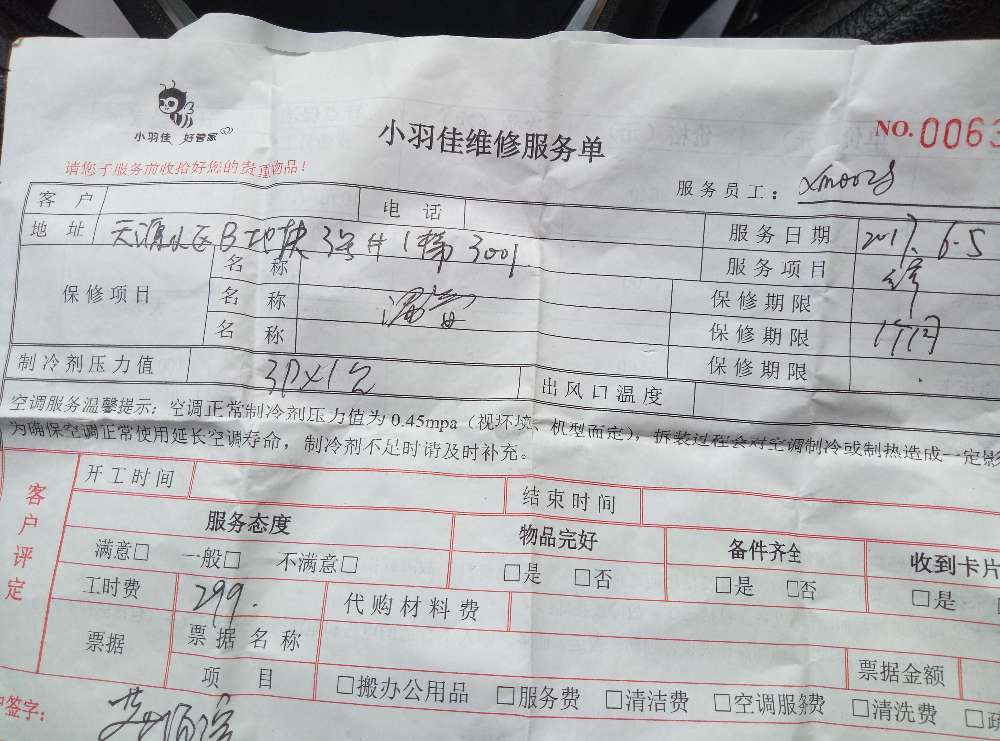 小羽佳 好管家
小羽佳维修服务单
NO. 0063
请您于服务前收拾好您的贵重物品!
服务员工:
客户 电话
地址 天源小区B地块3号件1第3001 服务日期 2017.6.5
名称 服务项目
保修项目 名称 漏 保修期限
名称 保修期限 1个月
保修期限
制冷剂压力值 3P×1台 出风口温度
空调服务温馨提示:空调正常制冷剂压力值为0.45mpa(视环境、机型而定),拆装过程会对空调制冷或制热造成一定影
为确保空调正常使用延长空调寿命,制冷剂不足时请及时补充。
客户评定
开工时间 结束时间
服务态度 物品完好 备件齐全 收到卡片
满意□ 一般□ 不满意□ □是 □否 □是 □否 □是
工时费 299. 代购材料费
票据 票据名称 票据金额
项目 □搬办公用品 □服务费 □清洁费 □空调服务费 □清洗费
签字: